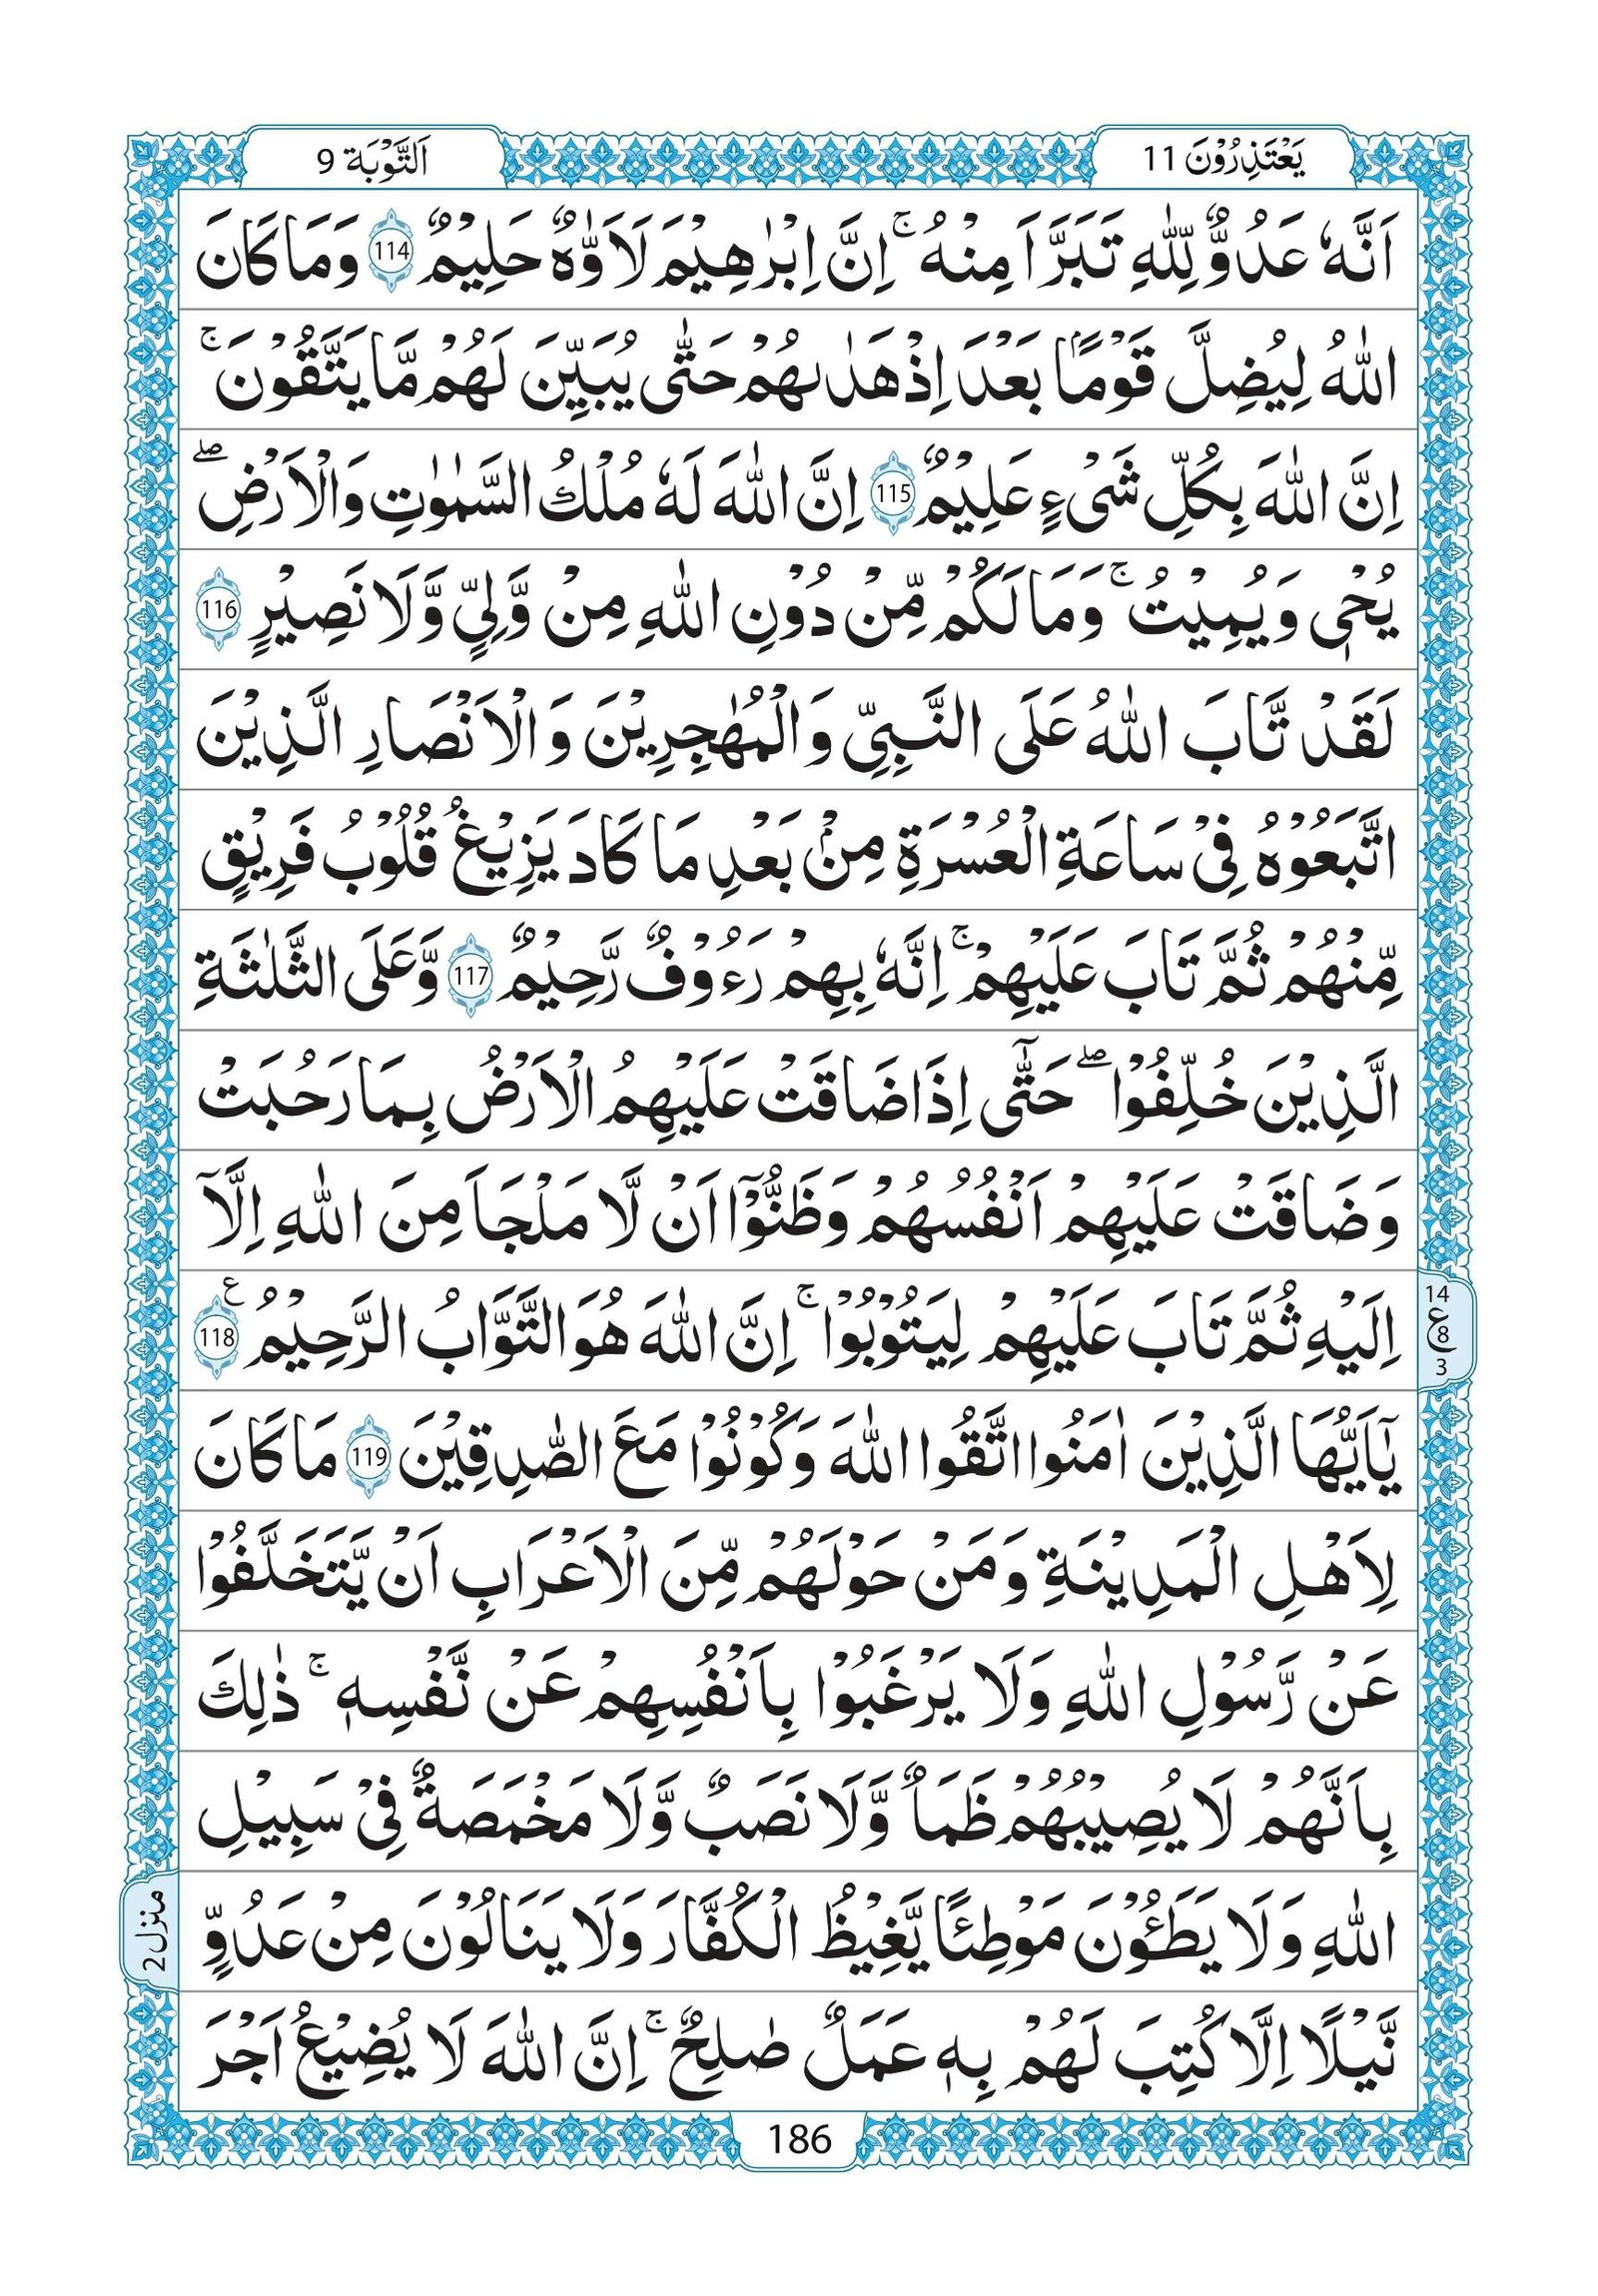 يَعْتَذِرُوْنَ 11
اَلتَّوْبَة 9
اَنَّهٗ عَدُوٌّ لِّلّٰهِ تَبَرَّاَ مِنْهُ ۚ اِنَّ اِبْرٰهِيْمَ لَاَوَّاهٌ حَلِيْمٌ 114 وَمَا كَانَ
اللّٰهُ لِيُضِلَّ قَوْمًۢا بَعْدَ اِذْ هَدٰىهُمْ حَتّٰى يُبَيِّنَ لَهُمْ مَّا يَتَّقُوْنَ ۚ
اِنَّ اللّٰهَ بِكُلِّ شَىْءٍ عَلِيْمٌ 115 اِنَّ اللّٰهَ لَهٗ مُلْكُ السَّمٰوٰتِ وَالْاَرْضِ ۖ
يُحْىٖ وَيُمِيْتُ ۚ وَمَا لَكُمْ مِّنْ دُوْنِ اللّٰهِ مِنْ وَّلِىٍّ وَّلَا نَصِيْرٍ 116
لَقَدْ تَّابَ اللّٰهُ عَلَى النَّبِىِّ وَالْمُهٰجِرِيْنَ وَالْاَنْصَارِ الَّذِيْنَ
اتَّبَعُوْهُ فِىْ سَاعَةِ الْعُسْرَةِ مِنْۢ بَعْدِ مَا كَادَ يَزِيْغُ قُلُوْبُ فَرِيْقٍ
مِّنْهُمْ ثُمَّ تَابَ عَلَيْهِمْ ۚ اِنَّهٗ بِهِمْ رَءُوْفٌ رَّحِيْمٌ 117 وَّعَلَى الثَّلٰثَةِ
الَّذِيْنَ خُلِّفُوْا ۖ حَتّٰٓى اِذَا ضَاقَتْ عَلَيْهِمُ الْاَرْضُ بِمَا رَحُبَتْ
وَضَاقَتْ عَلَيْهِمْ اَنْفُسُهُمْ وَظَنُّوْٓا اَنْ لَّا مَلْجَاَ مِنَ اللّٰهِ اِلَّآ
اِلَيْهِ ثُمَّ تَابَ عَلَيْهِمْ لِيَتُوْبُوْا ۚ اِنَّ اللّٰهَ هُوَ التَّوَّابُ الرَّحِيْمُ ع 118
14 ع 8 3
يٰٓاَيُّهَا الَّذِيْنَ اٰمَنُوا اتَّقُوا اللّٰهَ وَكُوْنُوْا مَعَ الصّٰدِقِيْنَ 119 مَا كَانَ
لِاَهْلِ الْمَدِيْنَةِ وَمَنْ حَوْلَهُمْ مِّنَ الْاَعْرَابِ اَنْ يَّتَخَلَّفُوْا
عَنْ رَّسُوْلِ اللّٰهِ وَلَا يَرْغَبُوْا بِاَنْفُسِهِمْ عَنْ نَّفْسِهٖ ۚ ذٰلِكَ
بِاَنَّهُمْ لَا يُصِيْبُهُمْ ظَمَاٌ وَّلَا نَصَبٌ وَّلَا مَخْمَصَةٌ فِىْ سَبِيْلِ
اللّٰهِ وَلَا يَطَـُٔوْنَ مَوْطِئًا يَّغِيْظُ الْكُفَّارَ وَلَا يَنَالُوْنَ مِنْ عَدُوٍّ
منزل 2
نَّيْلًا اِلَّا كُتِبَ لَهُمْ بِهٖ عَمَلٌ صٰلِحٌ ۚ اِنَّ اللّٰهَ لَا يُضِيْعُ اَجْرَ
186